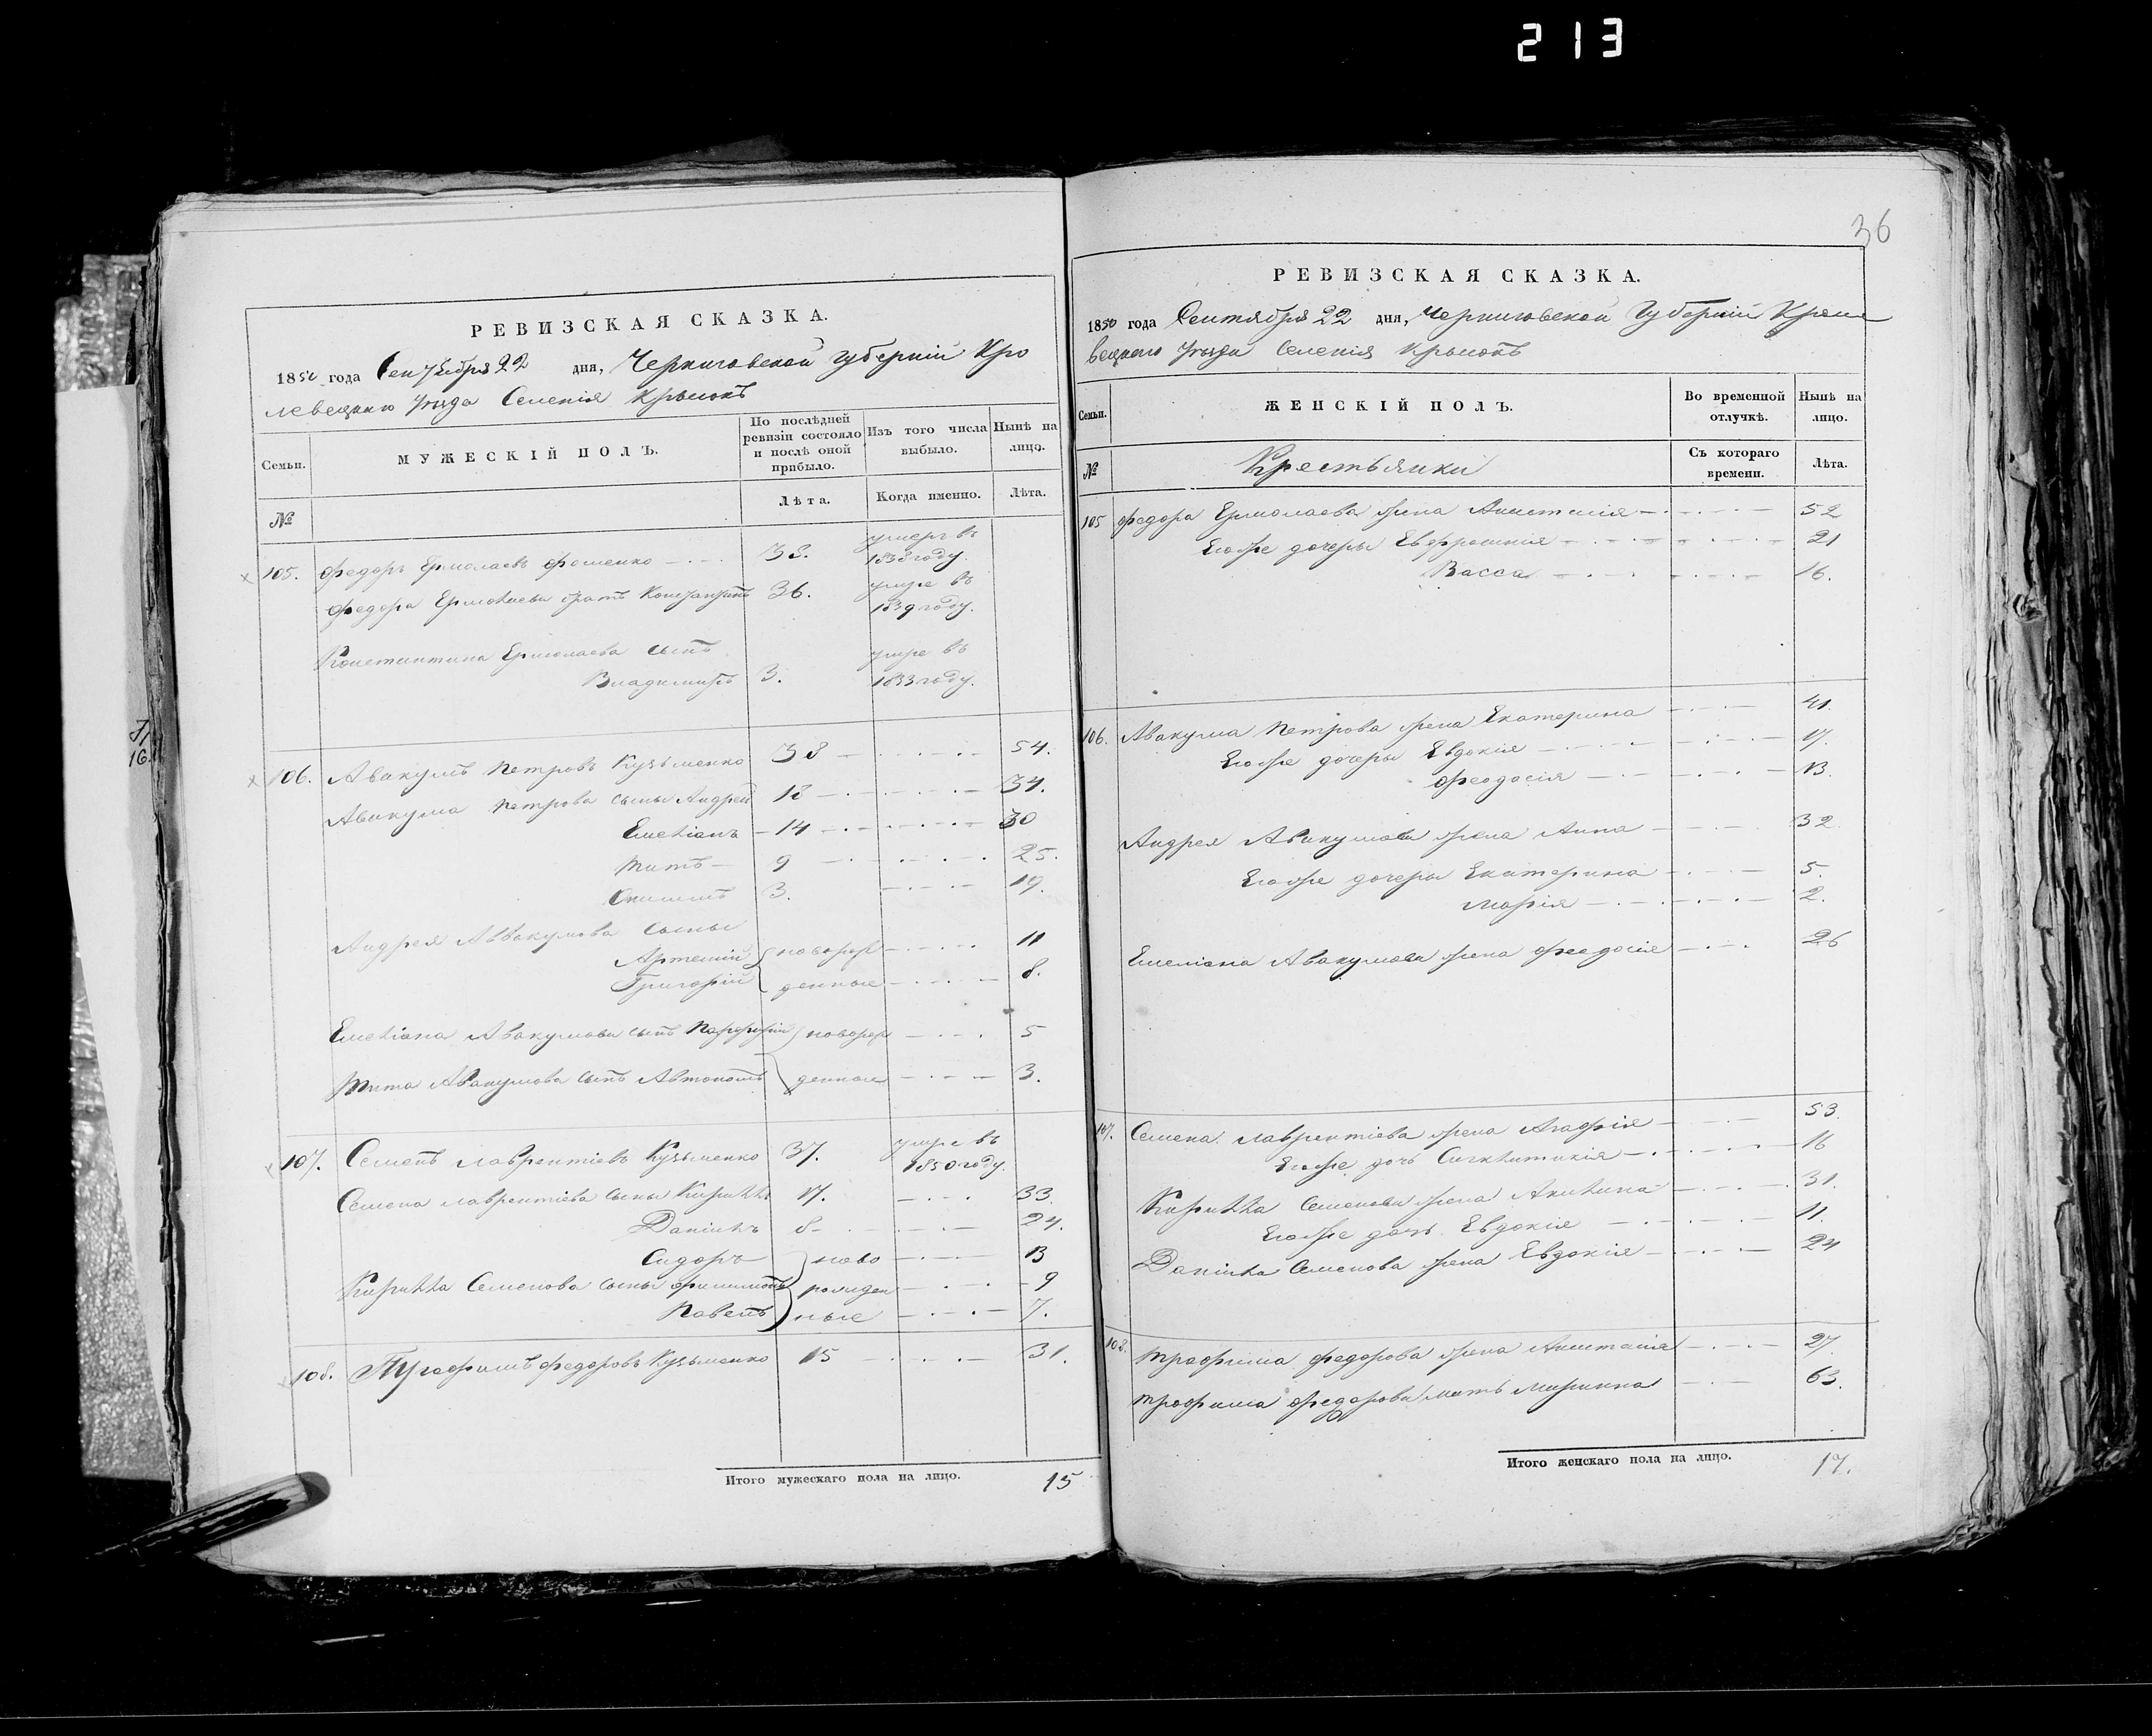 213
36
РЕВИЗСКАЯ СКАЗКА.
1850 года Сентября 22 дня, Черниговской губернiи Кро
левецкаго уезда Селенiя
Семьи.
МУЖЕСКIЙ ПОЛЪ.
По послѣдней ревизiи состояло и послѣ оной прибыло.
Изъ того числа выбыло.
Нынѣ на лицо.
№
Лѣта.
Когда именно.
Лѣта.
105. Федоръ Ермолаевъ Фоменко 38. умеръ въ 1838 году.
Федора Ермолаева братъ Константинъ 36. умре въ 1839 году.
Константина Ермолаева сынъ
Владимиръ 3. умре въ 1833 году.
106. Авакумъ Петровъ Кузьменко 38 54.
Авакума Петрова сыны Андрей 18 34.
Емелiанъ 14 30
Титъ 9 25.
3. 19.
Андрея Аввакумова сыны
Артемiй новорож 11
Григорiй денные 8.
Емелiана Авакумова сынъ новорож 5
Тита Авакумова сынъ Автономъ денные 3.
107. Семенъ Лаврентiевъ Кузьменко 37. умре въ 1850 году.
Семена Лаврентiева сыны Кирилла 17. 33.
Данiилъ 8 24.
Сидоръ ново 13
Кирилла Семенова сыны Филимонъ рожден 9
Павелъ ные 7.
108. Трофимъ Федоровъ Кузьменко 15 31.
Итого мужескаго пола на лицо. 15
РЕВИЗСКАЯ СКАЗКА.
1850 года Сентября 22 дня, Черниговской Губернiи Кроле
вецкаго уезда Селенiя
Семьи.
ЖЕНСКIЙ ПОЛЪ.
Во временной отлучкѣ.
Нынѣ на лицо.
№
Крестьянки
Съ котораго времени.
Лѣта.
105 Федора Ермолаева жена Анастасiя 52
Егоже дочеры Евфросинiя 21
Васса 16.
106. Авакума Петрова жена Екатерина 41.
Егоже дочеры Евдокiя 17.
Феодосiя 13.
Андрея Авакумова жена Анна 32
Егоже дочеры Екатерина 5.
Марiя 2.
Емелiана Авакумова жена Феодосiя 26
107. Семена Лаврентiева жена Агафiя 53.
Егоже дочь Синклитикiя 16
Кирилла Семенова жена Акилина 31.
Егоже дочь Евдокiя 11.
Данiила Семенова жена Евдокiя 24
108. Трофима Федорова жена Анастасiя 27.
Трофима Федорова мать Марина 63.
Итого женскаго пола на лицо. 17.